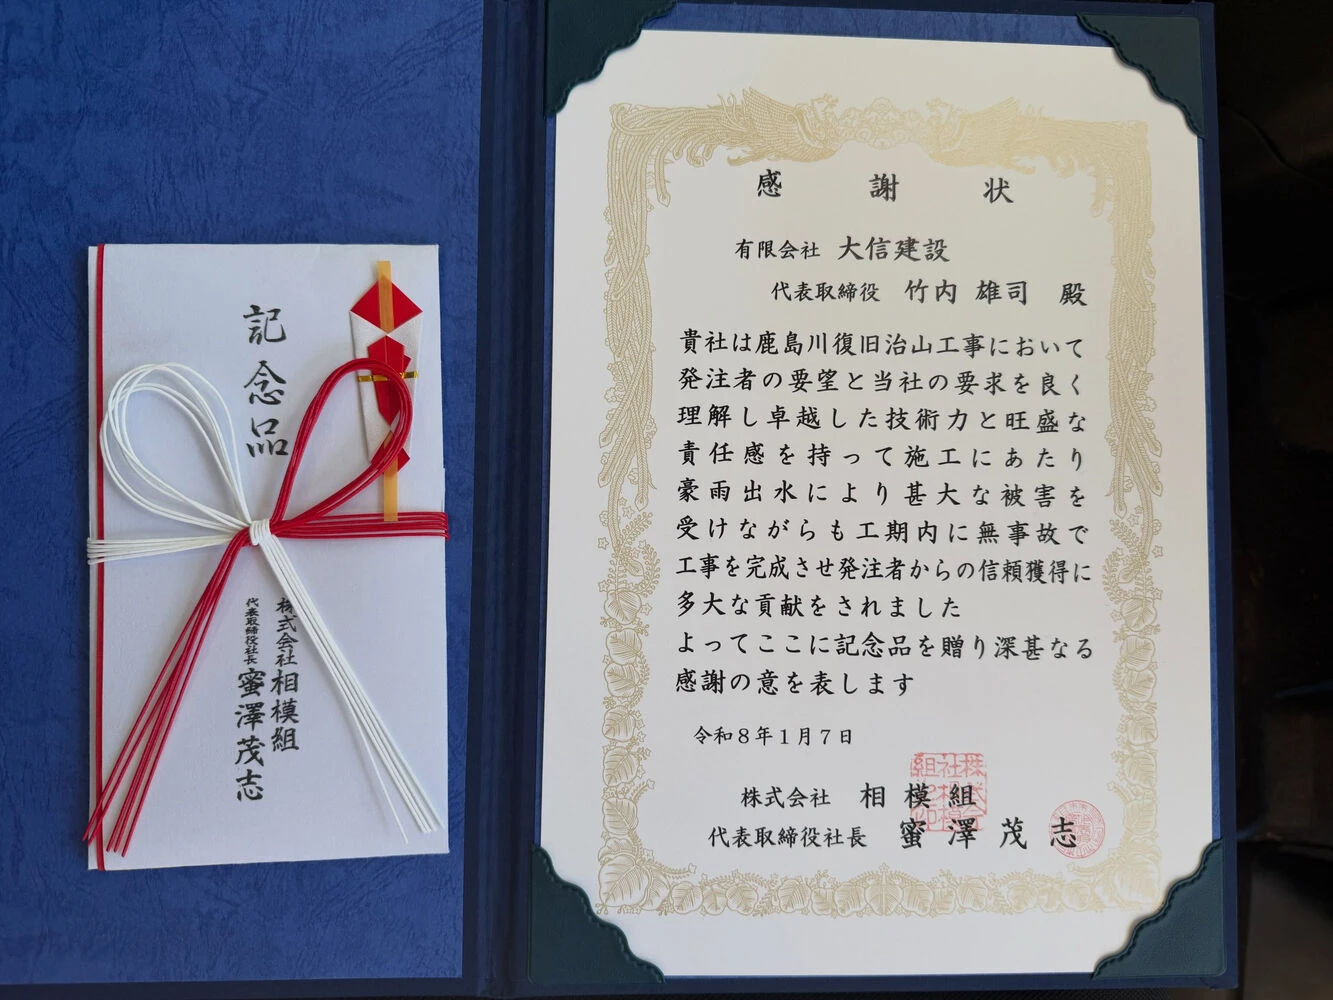 記念品
株式会社相模組
代表取締役社長 蜜澤茂志
感謝状
有限会社 大信建設
代表取締役 竹内 雄司 殿
貴社は鹿島川復旧治山工事において
発注者の要望と当社の要求を良く
理解し卓越した技術力と旺盛な
責任感を持って施工にあたり
豪雨出水により甚大な被害を
受けながらも工期内に無事故で
工事を完成させ発注者からの信頼獲得に
多大な貢献をされました
よってここに記念品を贈り深甚なる
感謝の意を表します
令和8年1月7日
株式会社 相模組
代表取締役社長 蜜澤茂志